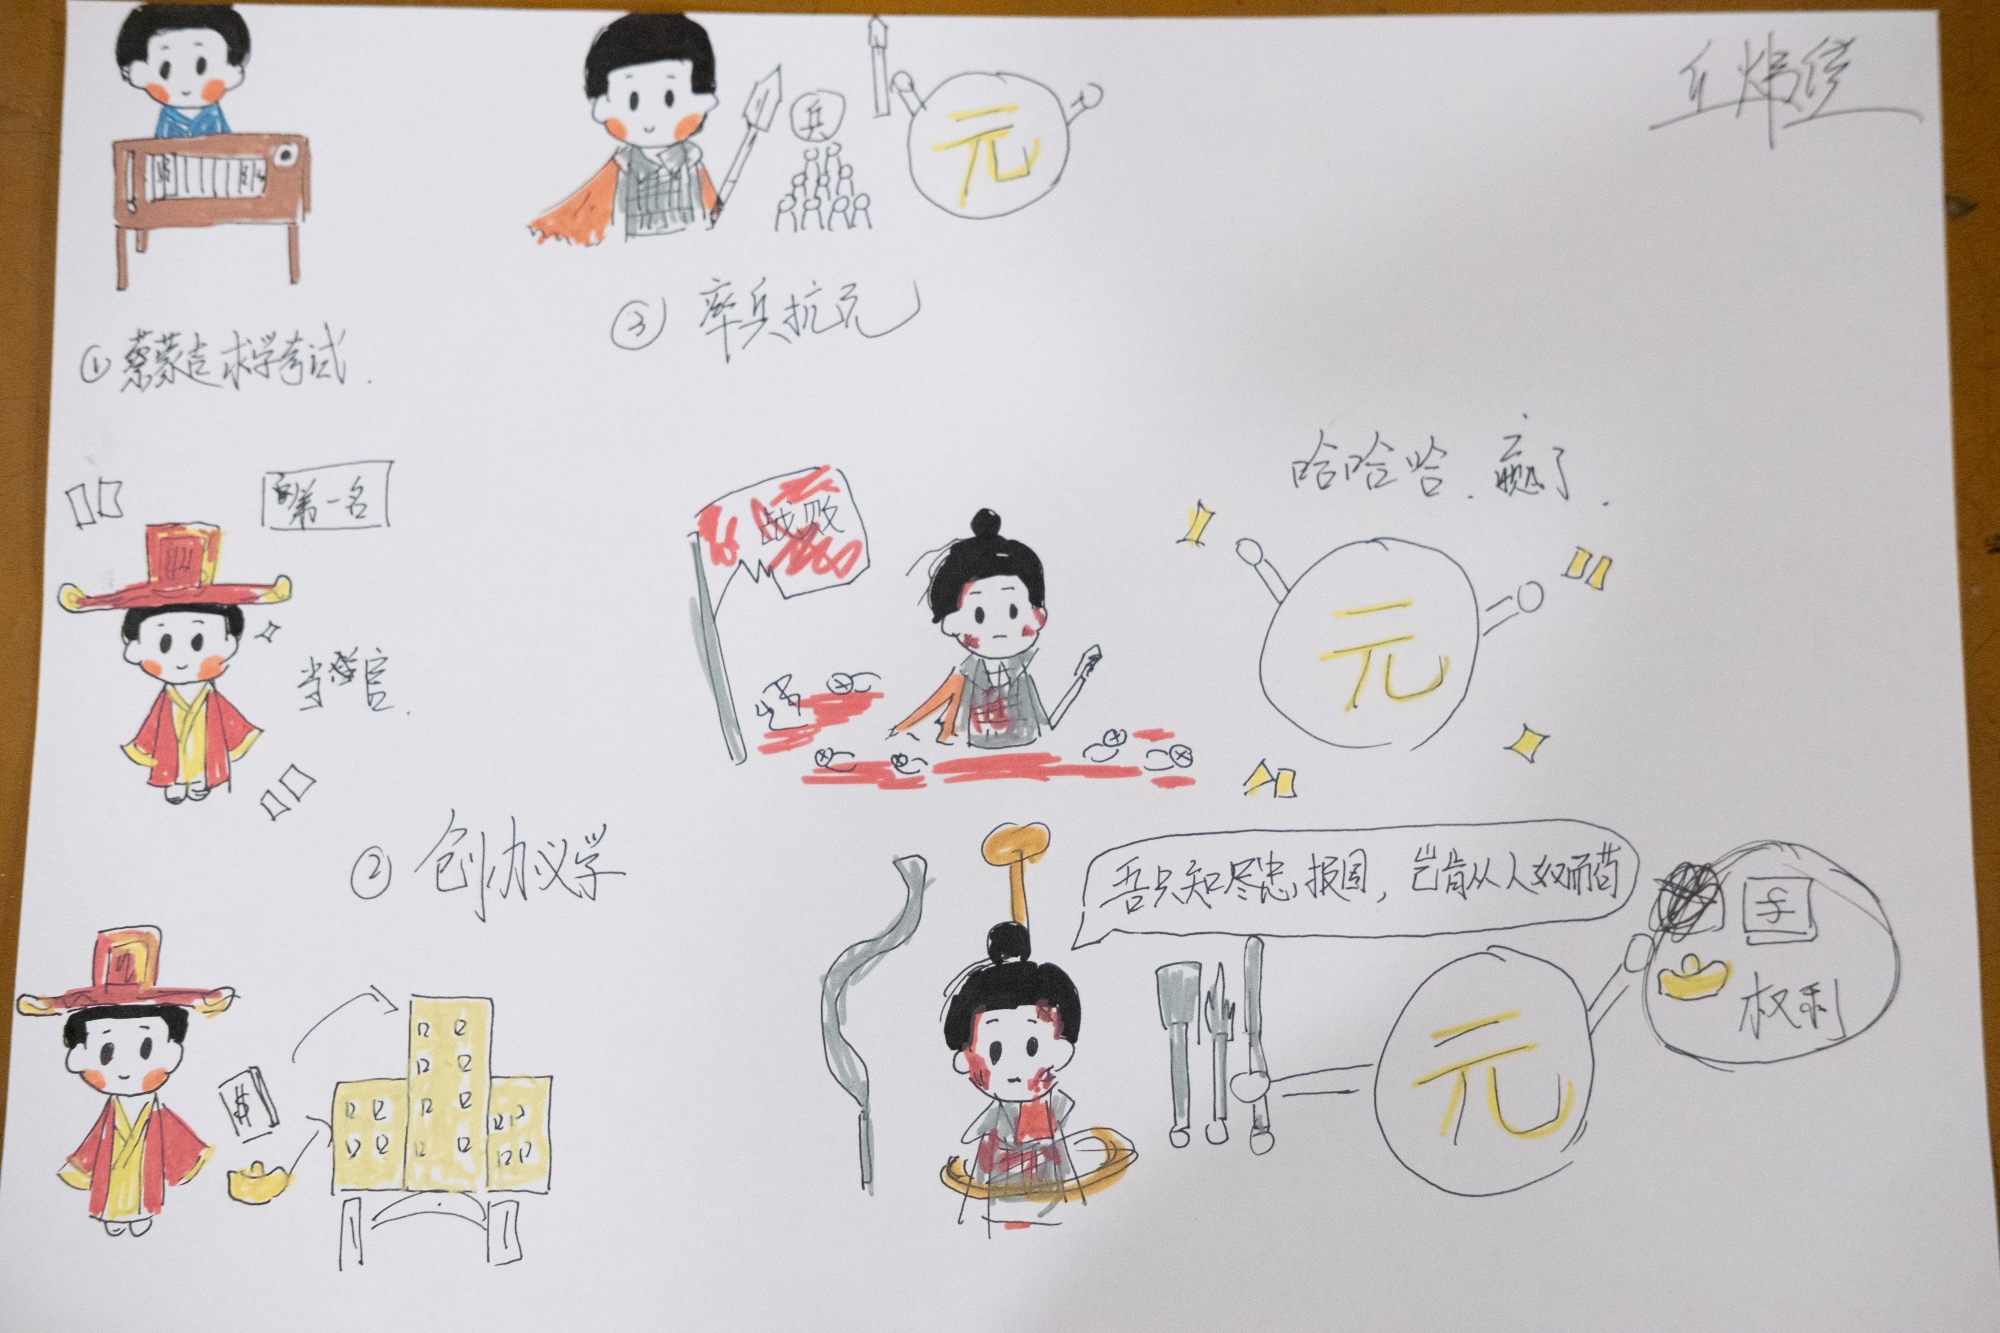 丘炜
兵
元
①蔡蒙吉求学考试.
③率兵抗元
第一名
当官.
战败
哈哈哈.赢了.
元
②创办义学
吾只知尽忠报国,岂肯从人叛而苟
元
权利